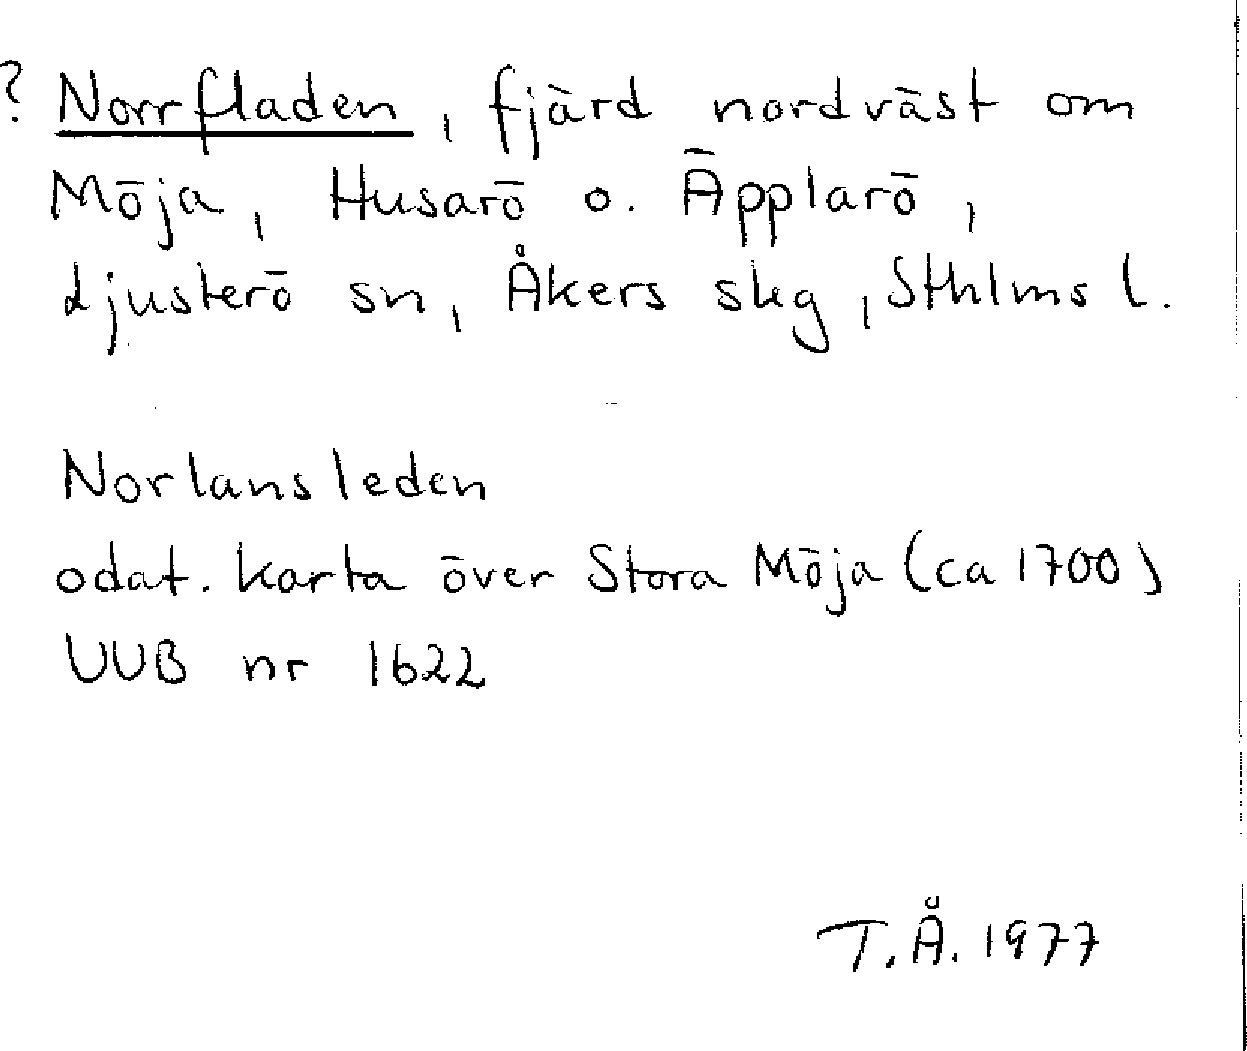 ? Norrfladen, fjärd nordväst om
Möja, Husarö o. Äpplarö,
Ljusterö sn, Åkers skg, Sthlms l.
Norlansleden
odat. karta över Stora Möja (ca 1700)
UUB nr 1622
T.Å. 1977